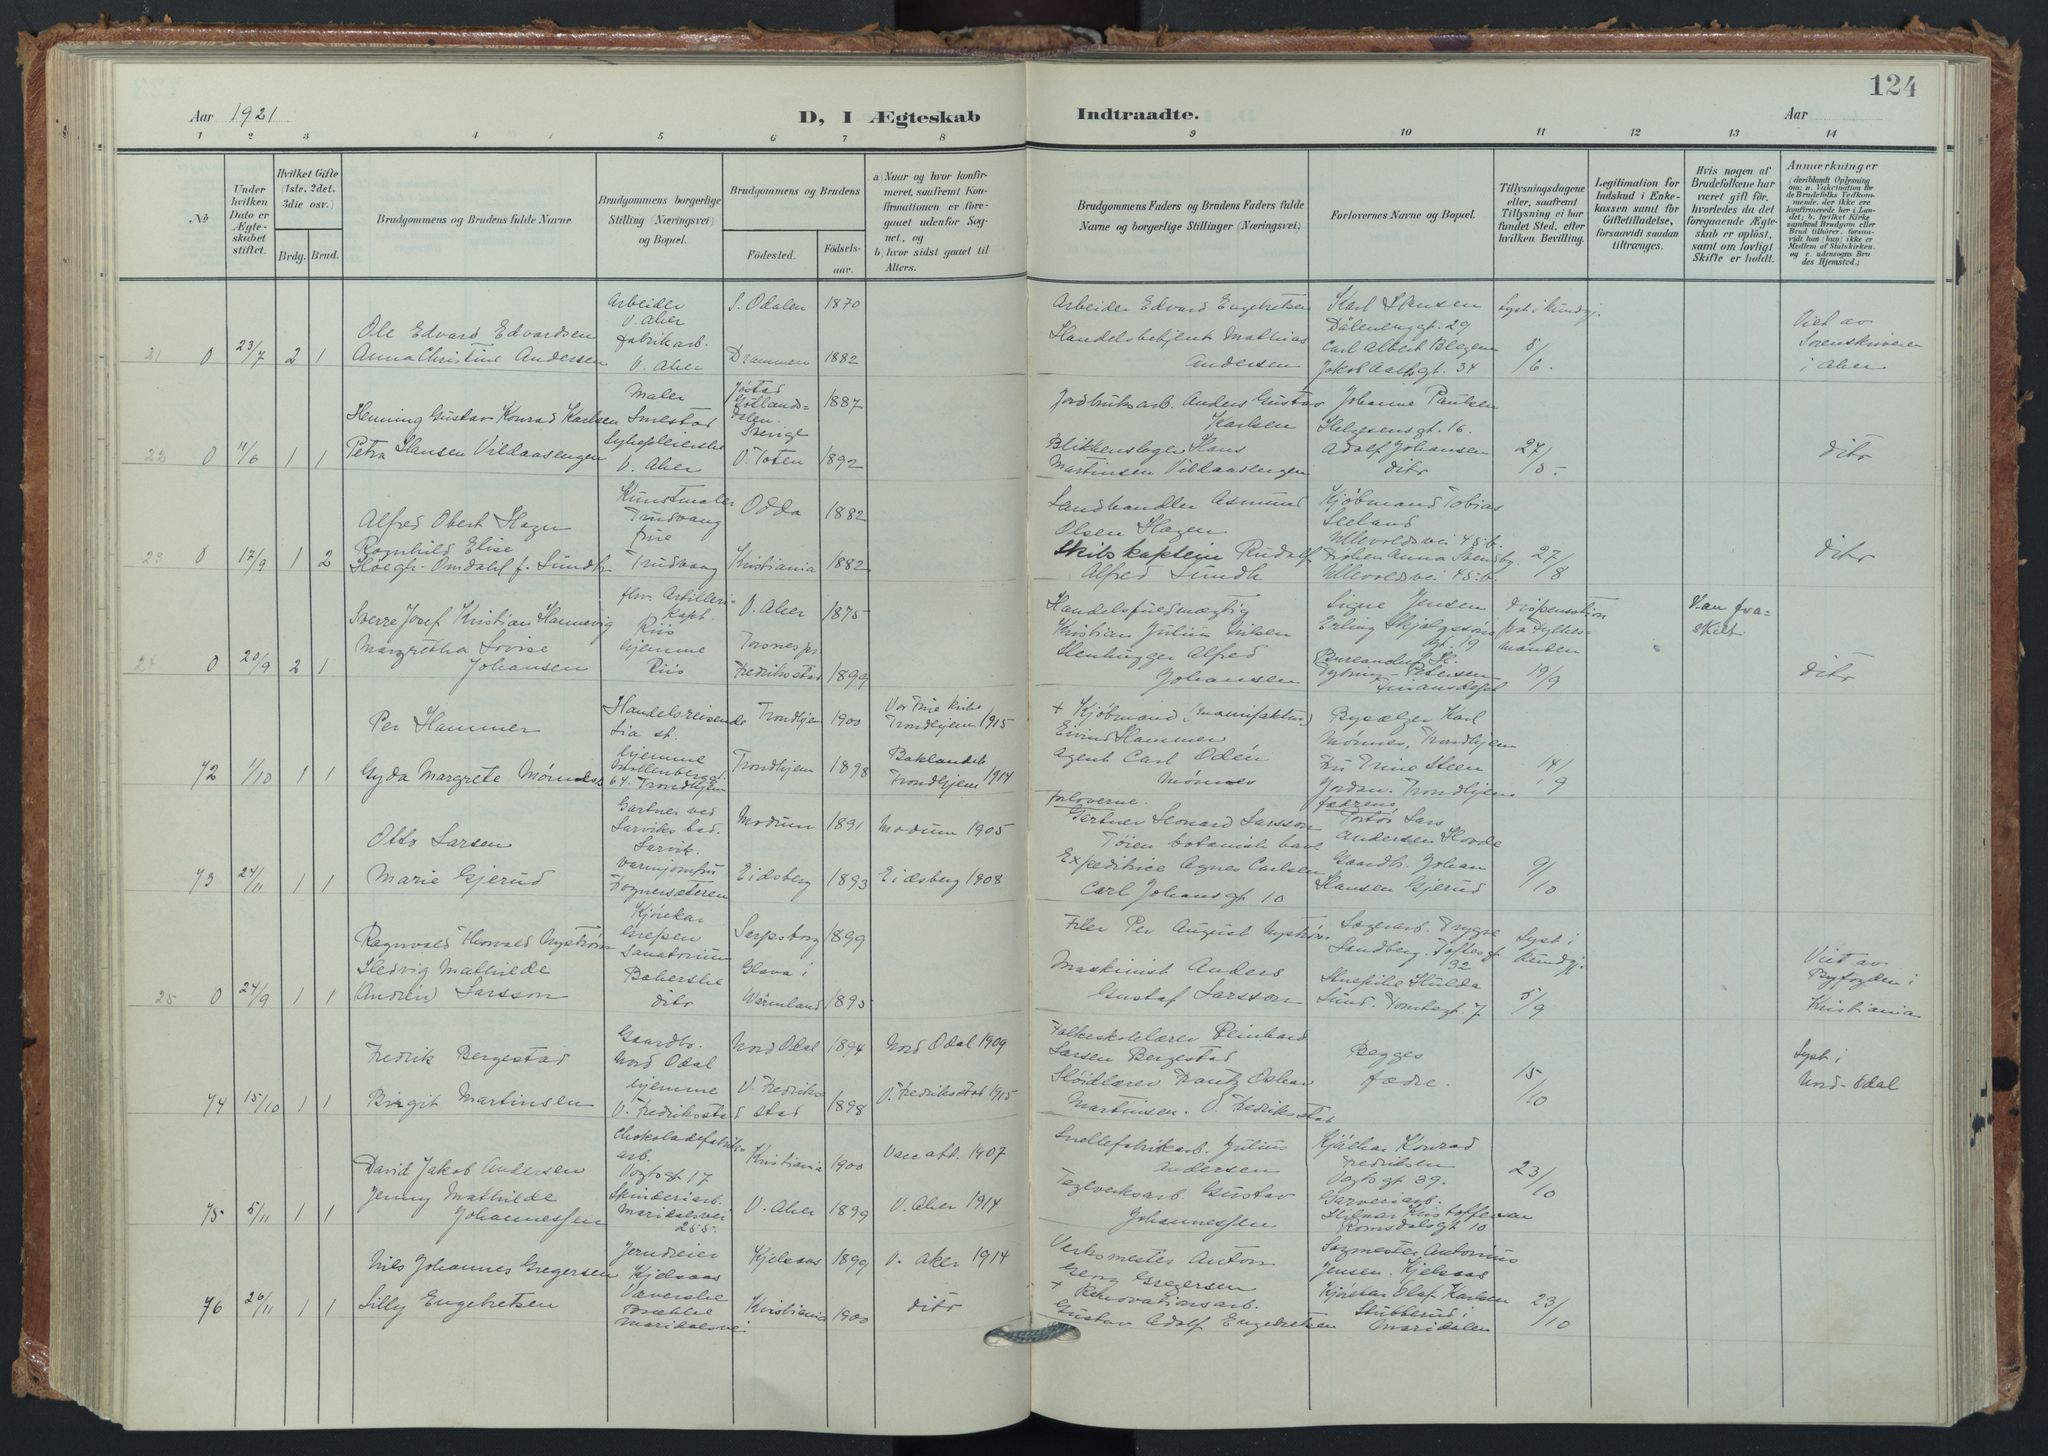 124
Aar 1921
D, I Ægteskab Indtraadte.
Aar
1 2 3 4 5 6 7 8 9 10 11 12 13 14
No
Under hvilken Dato er Ægteskabet stiftet.
Hvilket Gifte (1ste, 2det, 3die osv.)
Brdg. Brud.
Brudgommens og Brudens fulde Navne
Brudgommens borgerlige Stilling (Næringsvei) og Bopæl.
Brudgommens og Brudens
Fødested. Fødselsaar.
a) Naar og hvor konfirmeret, saafremt Konfirmationen er foregaaet udenfor Sognet, og
b) hvor sidst gaaet til Alters.
Brudgommens Faders og Brudens Faders fulde Navne og borgerlige Stillinger (Næringsvei)
Forlovernes Navne og Bopæl.
Tillysningsdagene eller, saafremt Tillysning ei har fundet Sted, efter hvilken Bevilling.
Legitimation for Indskud i Enkekassen samt for Giftetilladelse, forsaavidt saadan tiltrænges.
Hvis nogen af Brudefolkene har været gift før, hvorledes da det foregaaende Ægteskab er opløst, samt om lovligt Skifte er holdt.
Anmærkninger
21 0 23/7 2 1
Ole Edvard Edvardsen
Anna Christine Andersen
Arbeider
V. Aker
fabrikarb.
V. Aker
S. Odalen 1870
Drammen 1882
Arbeider Edvard Engebretsen
Handelsbetjent Mathias
Andersen
Karl Hansen
Dælenenggt. 29
Carl Albert Blegen
Jakob Aallsgt. 34
Lyst i Kundgj.
8/6.
Viet av
Sorenskriveren
i Aker
22 0 11/6 1 1
Henning Gustav Konrad Karlsen
Petra Hansen Vildaasengen
Maler
Smestad
Sykepleierske
V. Aker
Sverige 1887
V. Toten 1892
Jordbruksarb. Anders Gustav
Karlsen
Blikkenslager Hans
Martinsen Vildaasengen
Johanne Paulsen
Helgesensgt. 16.
Adolf Johansen
ditr
27/5.
ditr
23 0 17/9 1 2
Alfred Obert Hagen
Ragnhild Elise
Høegh-Omdahl f. Sundh
Kunstmaler
Trudvang
frue
Trudvang
Odda 1882
Kristiania 1882
Landhandler Asmund
Olsen Hagen
Skibskaptein Rudolf
Alfred Sundh
Kjøbmand Tobias
Seeland
Ullevoldsvei 45b.
Frøken Anna Stensby.
Ullevoldsvei 45b.
27/8
ditr
24 0 20/9 2 1
Sverre Josef Kristian Hannevig
Margretha Lovise
Johansen
fhv. Artilleri-
kapt.
Riis
hjemme
Riis
V. Aker 1875
Torsnes pr
Fredrikstad 1899
Handelsfuldmægtig
Kristian Julius Nilsen
Stenhugger Alfred
Johansen
Signe Jensen
Erling Skjalgssøns
gt. 19
Petersen
Finansdept
Dispensation
fra Fylkes-
manden
19/9
Van fra-
skilt
ditr
72 1/10 1 1
Per Hammer
Gyda Margrete Mønnes
Handelsreisende
Lia st.
hjemme
Mollenberggt.
64. Trondhjem
Trondhjem 1900
Trondhjem 1898
Vor Frue kirke
Trondhjem 1915
Baklandet
Trondhjem 1914
+ Kjøbmand (manifaktur)
Eivind Hammer
Agent Carl Odén
Mønnes
Bysælger Karl
Mønnes, Trondhjem
Fru Trine Steen
Jordan. Trondhjem
14/9
73 24/11 1 1
Otto Larsen
Marie Gjerud
Gartner ved
Larviks bad.
Larvik.
Varmjomfru
Frognersæteren
Modum 1891
Eidsberg 1893
Modum 1905
Eidsberg 1908
Forloverne.
Gartner Leonard Larsson
Tøien botanisk have
Expeditrice Agnes Carlsen
Carl Johansgt 10
fædrene
Lars
Andersen Hovde
Gaardb. Johan
Hansen Gjerud
9/10
25 0 24/9 1 1
Ragnvald Thorvald Nystrøm
Hedvig Mathilde
(Andrén) Larsson
Kjørekar
Grefsen
Sanatorium
Bakerske
ditr
Sarpsborg 1899
Glava i
Wärmland 1895
Filer Per August Nystrøm
Maskinist Anders
Gustaf Larsson
Lagerarb. Trygve
Sandberg. Toftesgt
32
Huspike Hulda
Lund. Tomtegt. 7
Lyst i
Kundgj.
5/9
Viet av
Byfogden i
Kristiania
74 15/10 1 1
Fredrik Bergestad
Birgit Martinsen
Gaardbr.
Nord Odal
hjemme
V. Fredrikstad
Nord Odal 1894
V. Fredrik-
stad 1898
Nord Odal 1909
V. Fredrikstad 1915
Folkeskolelærer Reinhard
Larsen Bergestad
Sløidlærer Frantz Oskar
Martinsen. V. Fredrikstad
Begges
fædre.
15/10
Lyst i
Nord-Odal
75 5/11 1 1
David Jakob Andersen
Jenny Mathilde
Johannessen
Chokoladefabrik-
arb.
Vogtsgt 17
Skinderiarb.
Maridalsvei
255.
Kristiania 1900
V. Aker 1899
Vacc att. 1907
V. Aker 1914
Snellefabrikarb. Julius
Andersen
Teglverksarb. Gustav
Johannessen
Kjørekar Konrad
Fredriksen
Vogtsgt 39.
Garveriarb.
Hilmar Kristoffersen
Romsdalsgt 10
23/10
76 26/11 1 1
Nils Johannes Gregersen
Lilly Engebretsen
Jerndreier
Kjelsaas
Væverske
Brække
Maridalsvei
Kjelsaas 1899
Kristiania 1900
V. Aker 1914
ditr
Verksmester Anton
Georg Gregersen
+ Renovationsarb.
Gustav Adolf Engebretsen
Sagmester Antonius
Jensen. Kjelsaas
Kjørekar Olaf Karlsen
Stubberud i
Maridalen
23/10